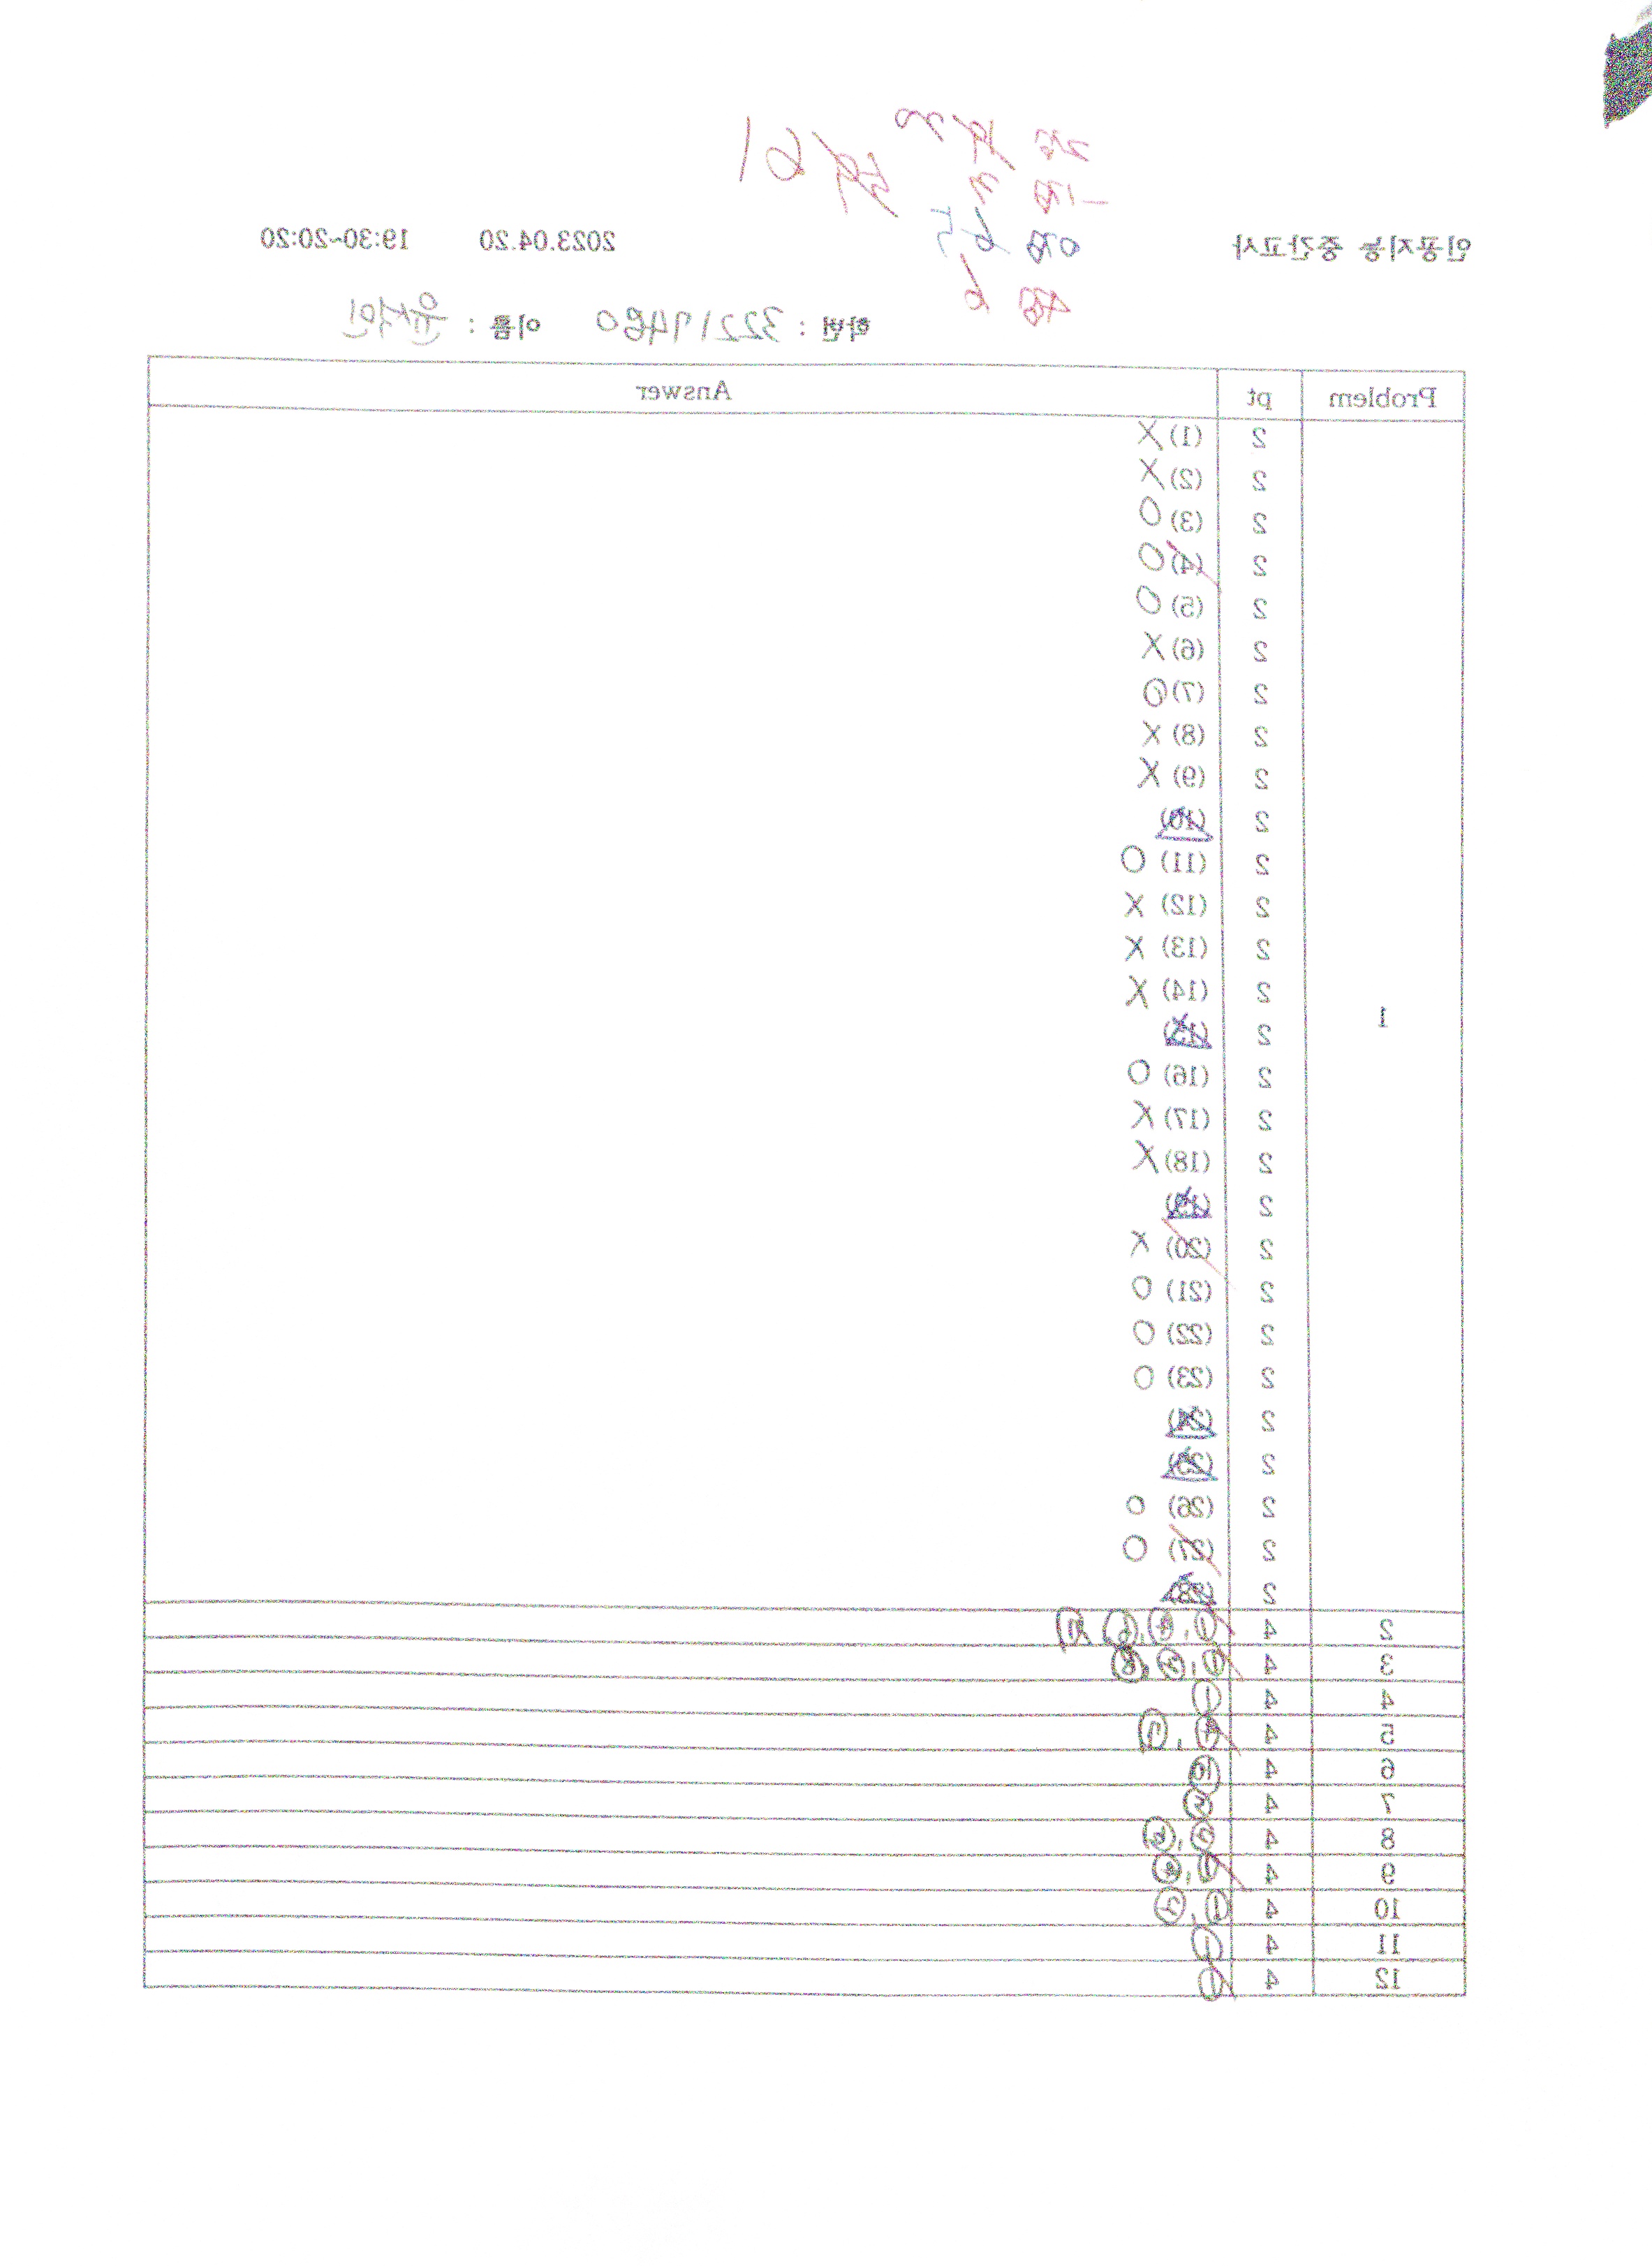 인공지능 중간고사 2023.04.20 19:30~20:20
학번 : 32217480 이름 : 윤석민
Problem pt Answer
1
2 (1) X
2 (2) X
2 (3) O
2 (4) O
2 (5) O
2 (6) X
2 (7) O
2 (8) X
2 (9) X
2 (10)
2 (11) O
2 (12) X
2 (13) X
2 (14) X
2 (15)
2 (16) O
2 (17) X
2 (18) X
2 (19)
2 (20) X
2 (21) O
2 (22) O
2 (23) O
2 (24)
2 (25)
2 (26) O
2 (27) O
2 (28)
2 4
3 4
4 4 ①
5 4
6 4
7 4
8 4
9 4
10 4
11 4 ①
12 4 ①